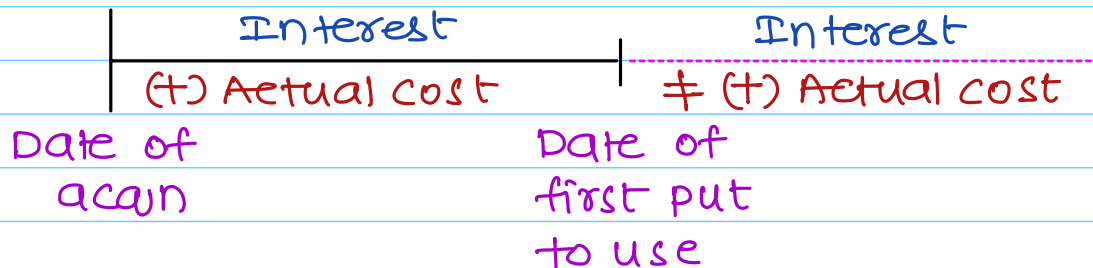 Interest Interest
(+) Actual cost ≠ (+) Actual cost
Date of Date of
acqn first put
to use